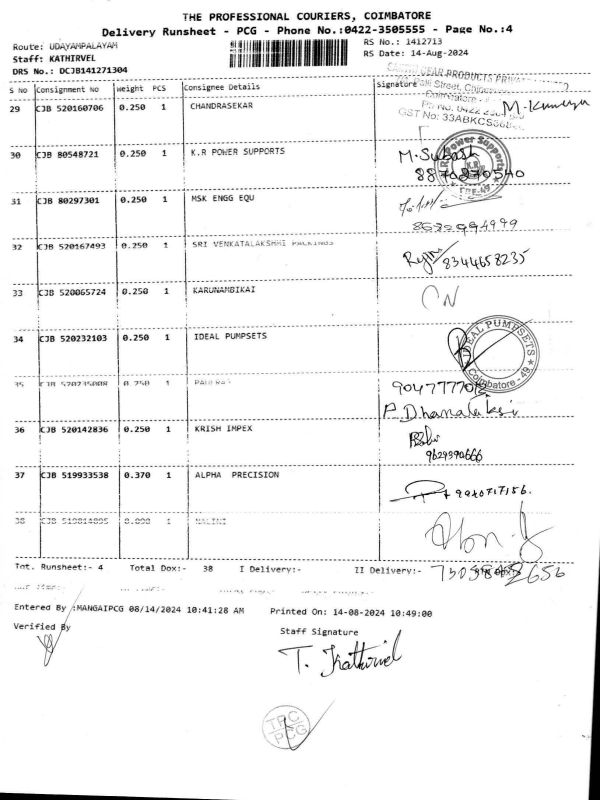 THE PROFESSIONAL COURIERS, COIMBATORE
Delivery Runsheet - PCG - Phone No.:0422-3505555 - Page No.:4
Route: UDAYAMPALAYAM
RS No.: 1412713
Staff: KATHIRVEL
RS Date: 14-Aug-2024
DRS No.: DCJB141271304
S No Consignment No Weight PCS Consignee Details Signature
GEAR PRODUCTS
GST No: 33ABKCS
29 CJB 520160706 0.250 1 CHANDRASEKAR
30 CJB 80548721 0.250 1 K.R POWER SUPPORTS M. Subash
8870870540
31 CJB 80297301 0.250 1 MSK ENGG EQU
32 CJB 520167493 0.250 1 SRI VENKATALAKSHMI PACKINGS
8344658235
33 CJB 520065724 0.250 1 KARUNAMBIKAI
34 CJB 520232103 0.250 1 IDEAL PUMPSETS
IDEAL PUMPSETS
Coimbatore - 49
35 CJB 520235008 0.250 1
P. Dhanalaksi
36 CJB 520142836 0.250 1 KRISH IMPEX
9629390666
37 CJB 519933538 0.370 1 ALPHA PRECISION
38 CJB 519814895 0.090 1 NALINI
Tot. Runsheet:- 4 Total Dox:- 38 I Delivery:- II Delivery:-
Entered By :MANGAIPCG 08/14/2024 10:41:28 AM Printed On: 14-08-2024 10:49:00
Verified By
Staff Signature
T. Kathirvel
TPC
PCG